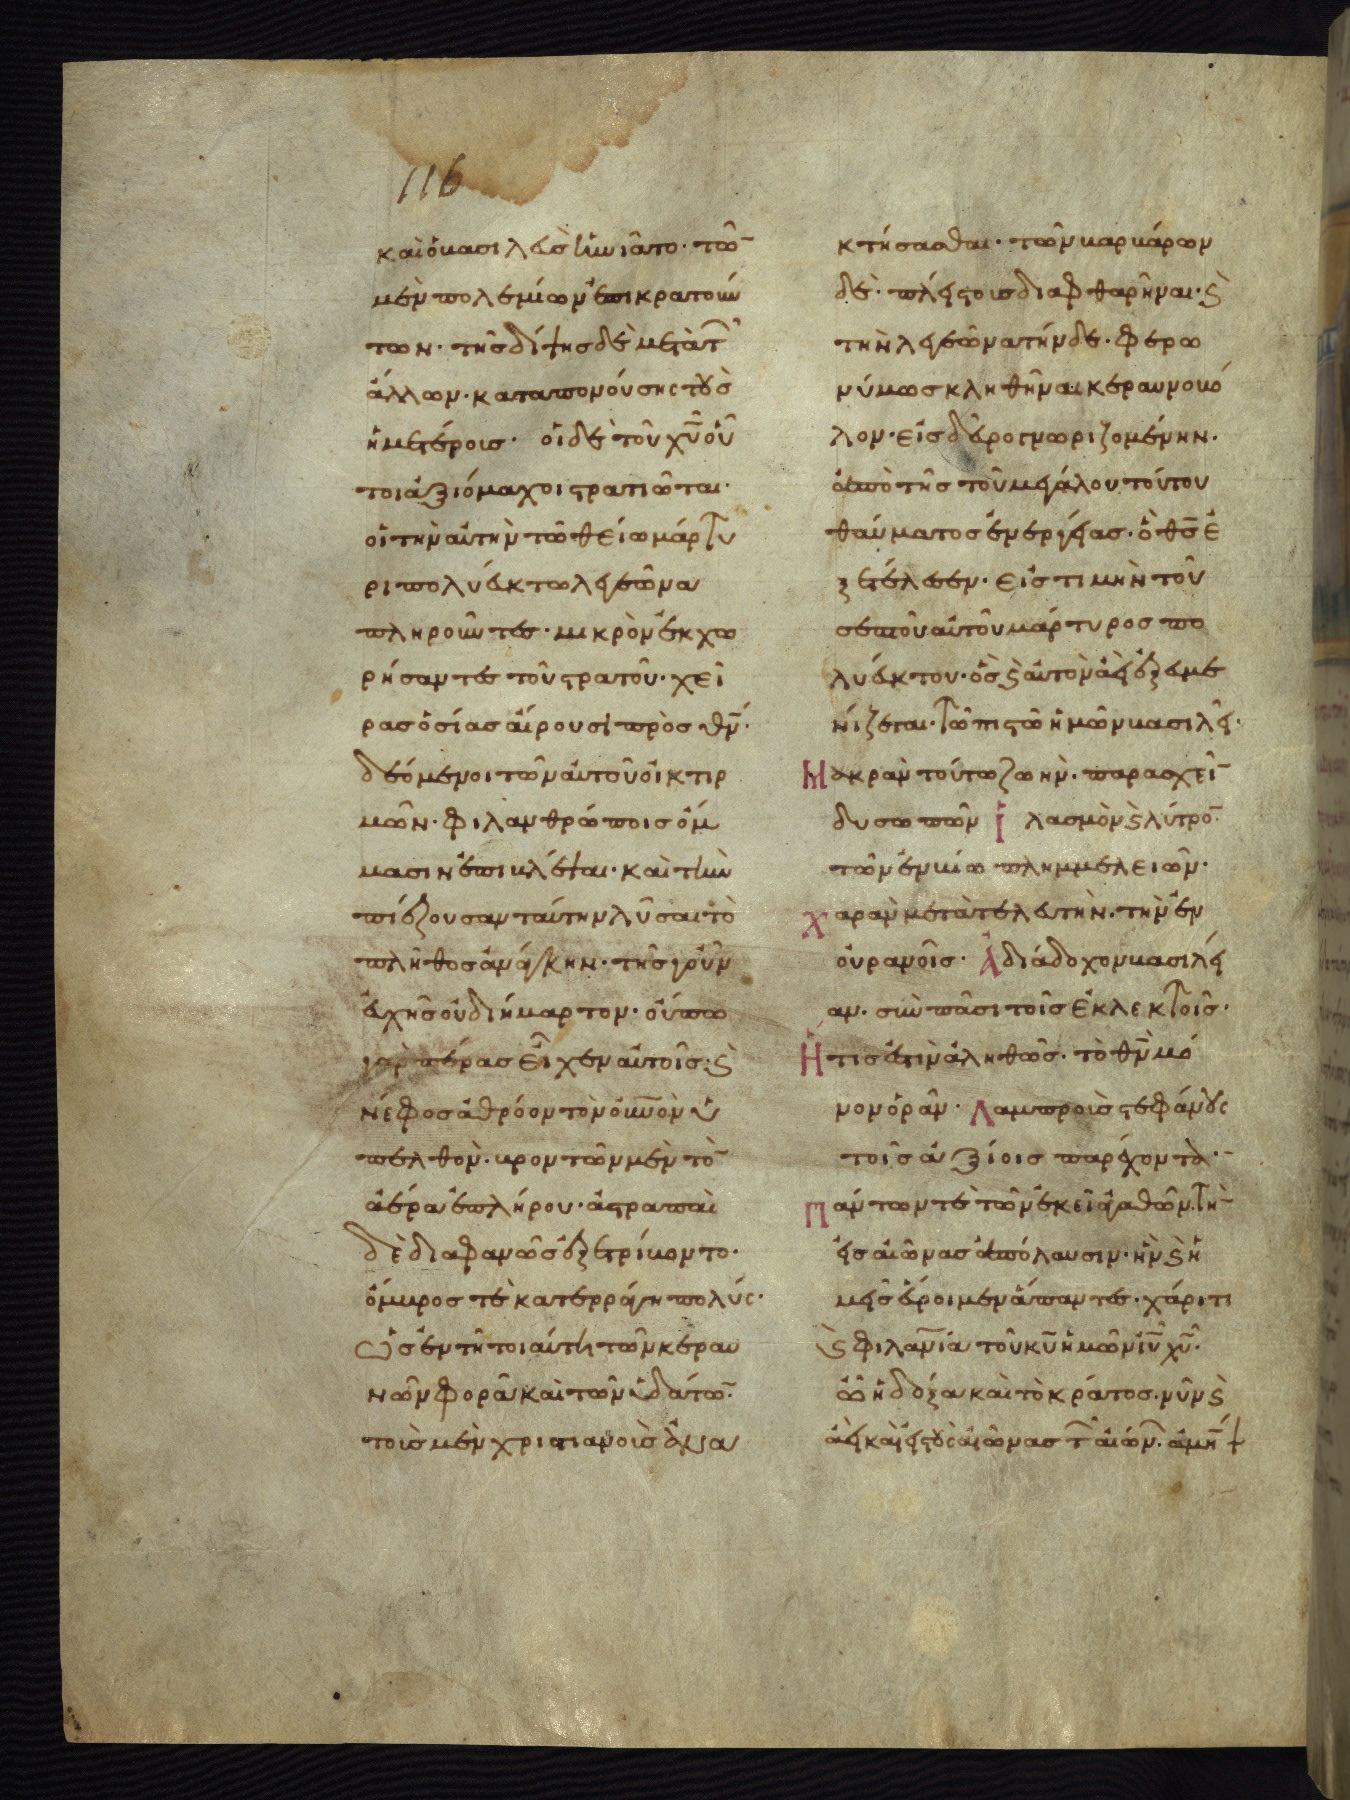 116
καὶ ὁ βασιλεὺς ἠνιᾶτο· τῶ̅
μὲν πολεμίων ἐπικρατούν
των· τῆς δίψης δὲ μετὰ τ̅
ἄλλων· καταπονούσης τοὺς
ἡμετέροις· οἱ δὲ τοῦ χ̅υ̅ οὗ
τοι ἀξιόμαχοι στρατιῶται·
οἱ τὴν αὐτὴν τῶ θείω μάρτυ
ρι πολυεύκτω λεγεῶνα
πληροῦντες· μικρὸν ἐκχω
ρήσαντες τοῦ στρατοῦ· χεῖ
ρας ὁσίας αἴρουσι πρὸς θ̅ν̅·
δεόμενοι τῶν αὐτοῦ οἰκτιρ
μῶν· φιλανθρώποις ὄμ
μασιν ἐπικλέψαι· καὶ τὴν
πιέζουσαν ταύτην λῦσαι τὸ
πλῆθος ἀνάγκην· τῆς γοῦν
εὐχῆς οὐ διήμαρτον· οὔπω
γὰρ πέρας εἶχεν αὐτοῖς· ϗ
νέφος ἀθρόον τὸν οὐνὸν ὑ
πελθὸν· βροντῶν μὲν τὸ̅
ἀέρα ἐπλήρου· ἀστραπαὶ
δὲ διαφανῶς ἐξετρίβοντο·
ὄμβρος τὲ κατερράγη πολύς·
ὡς ἐν τῆ τοιαύτη τῶν κεραυ
νῶν φορᾶ καὶ τῶν ὑδάτω̅·
τοῖς μὲν χριστιανοῖς ὄνα
κτήσασθαι· τῶν βαρβάρων
δὲ· πλείστοις διαφθαρῆναι· ϗ
τὴν λεγεῶνα τήνδε· φερω
νύμως κληθῆναι κεραυνοβό
λον· εἰς δεῦρο γνωριζομένην·
ἀπὸ τῆς τοῦ μεγάλου τούτου
θαύματος ἐνεργείας· ὃ θ̅ς̅ ἐ
ξετέλεσεν· εἰς τιμὴν τοῦ
σεπτοῦ αὐτοῦ μάρτυρος πο
λυεύκτου· ὃς ϗ αὐτὸν ἀεὶ ἐξευμε
νίζεται· τῶ πιστῶ ἡμῶν βασιλεῖ·
Μακρὰν τούτω ζωὴν· παρασχεῖ̅
δυσωπῶν Ἱλασμὸν ϗ λύτρο̅·
τῶν ἐν βίω πλημμελειῶν·
Χαρὰν μετὰ τελευτὴν· τὴν ἐν
οὐρανοῖς· Ἀδιάδοχον βασιλεί
αν· σὺν πᾶσι τοῖς ἐκλεκτοῖς·
Ἥτις ἐστὶν ἀληθῶς· τὸ θ̅ν̅ μό
νον ὁρᾶν· Λαμπροὺς στεφάνους
τοῖς ἀξίοις παρέχοντα·
Πάντων τε τῶν ἐκεῖ ἀγαθῶν· τὴ̅
εἰς αἰῶνας ἀπόλαυσιν· ἣν ϗ ἡ
μεῖς εὕροιμεν ἅπαντες· χάριτι
ϗ φιλαν̅ία τοῦ κ̅υ̅ ἡμῶν ἰ̅υ̅ χ̅υ̅·
ὧ ἡ δόξα καὶ τὸ κράτος· νῦν ϗ
ἀεὶ καὶ εἰς τοὺς αἰῶνας τ̅ αἰών̅· ἀμή̅ +